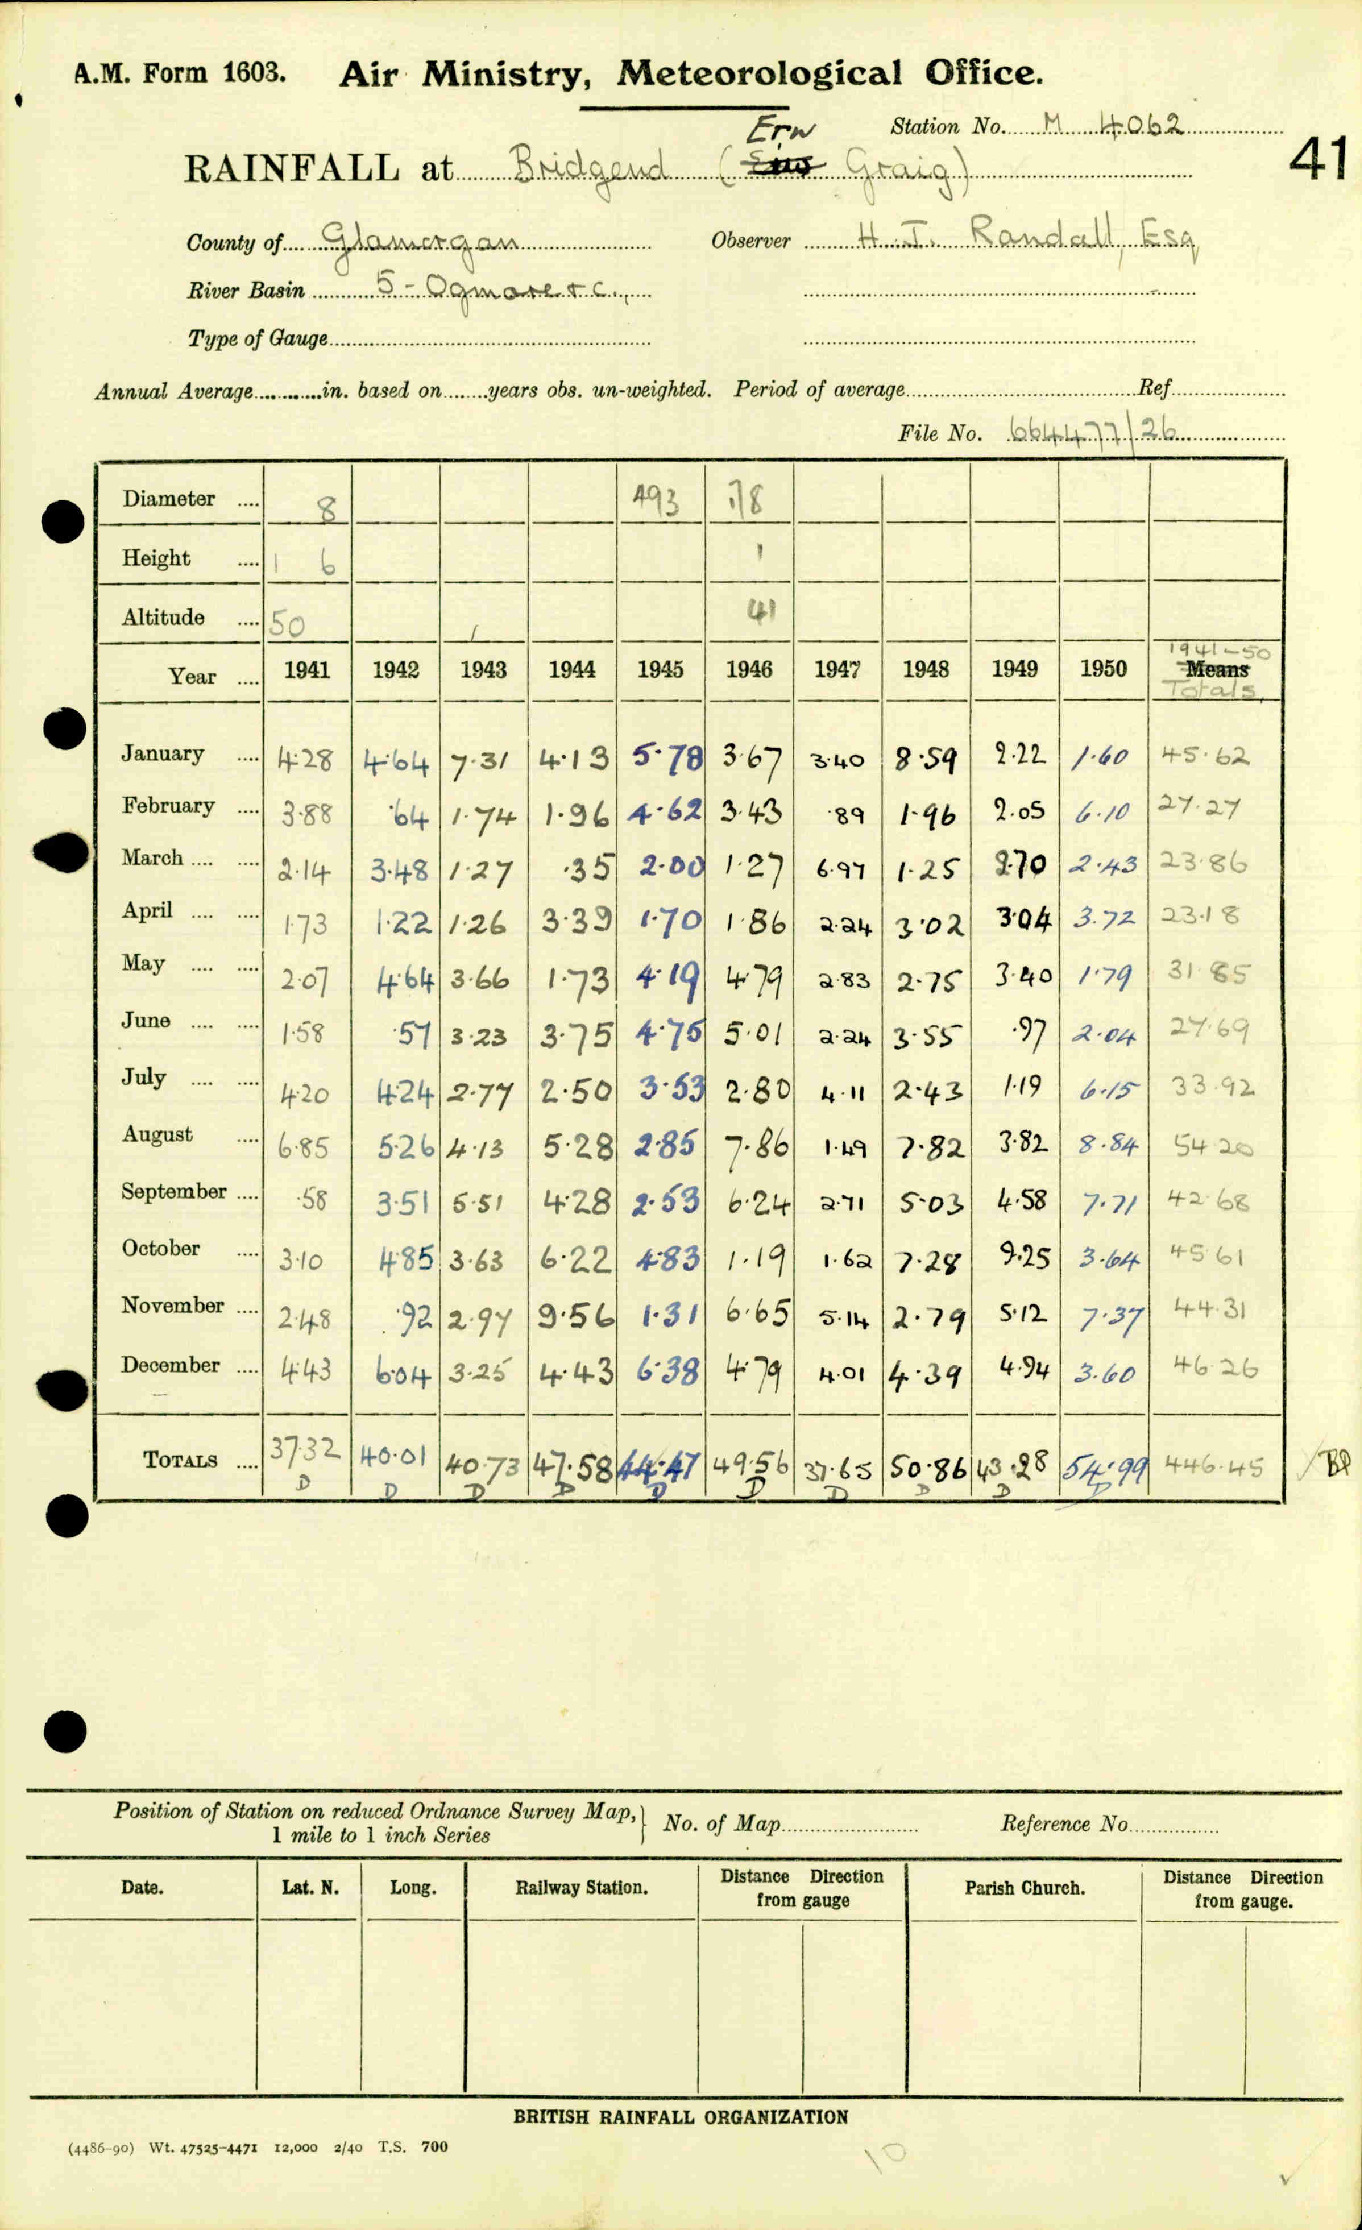 A.M. Form 1603. Air Ministry, Meteorological Office.
Station No. M 4062
Erw
RAINFALL at Bridgend ( Graig)
41
County of Glamorgan Observer H. J. Randall, Esq
River Basin 5 - Ogmore & c.,
Type of Gauge
Annual Average in. based on years obs. un-weighted. Period of average Ref
File No. 664477/26
Diameter 8 493 1/8
Height 1 6 1
Altitude 50 41
1941-50
Year 1941 1942 1943 1944 1945 1946 1947 1948 1949 1950 Means
Totals,
January 4.28 4.64 7.31 4.13 5.78 3.67 3.40 8.59 2.22 1.60 45.62
February 3.88 .64 1.74 1.96 4.62 3.43 .89 1.96 2.05 6.10 27.27
March 2.14 3.48 1.27 .35 2.00 1.27 6.97 1.25 2.70 2.43 23.86
April 1.73 1.22 1.26 3.39 1.70 1.86 2.24 3.02 3.04 3.72 23.18
May 2.07 4.64 3.66 1.73 4.19 4.79 2.83 2.75 3.40 1.79 31.85
June 1.58 .57 3.23 3.75 4.75 5.01 2.24 3.55 .97 2.04 27.69
July 4.20 4.24 2.77 2.50 3.53 2.80 4.11 2.43 1.19 6.15 33.92
August 6.85 5.26 4.13 5.28 2.85 7.86 1.49 7.82 3.82 8.84 54.20
September .58 3.51 5.51 4.28 2.53 6.24 2.71 5.03 4.58 7.71 42.68
October 3.10 4.85 3.63 6.22 4.83 1.19 1.62 7.28 9.25 3.64 45.61
November 2.48 .92 2.97 9.56 1.31 6.65 5.14 2.79 5.12 7.37 44.31
December 4.43 6.04 3.25 4.43 6.38 4.79 4.01 4.39 4.94 3.60 46.26
TOTALS 37.32 40.01 40.73 47.58 44.47 49.56 37.65 50.86 43.28 54.99 446.45
D D D D D D D D D D
Position of Station on reduced Ordnance Survey Map, No. of Map Reference No.
1 mile to 1 inch Series
Date. Lat. N. Long. Railway Station. Distance Direction from gauge Parish Church. Distance Direction from gauge.
BRITISH RAINFALL ORGANIZATION
(4486-90) Wt. 47525-4471 12,000 2/40 T.S. 700
10